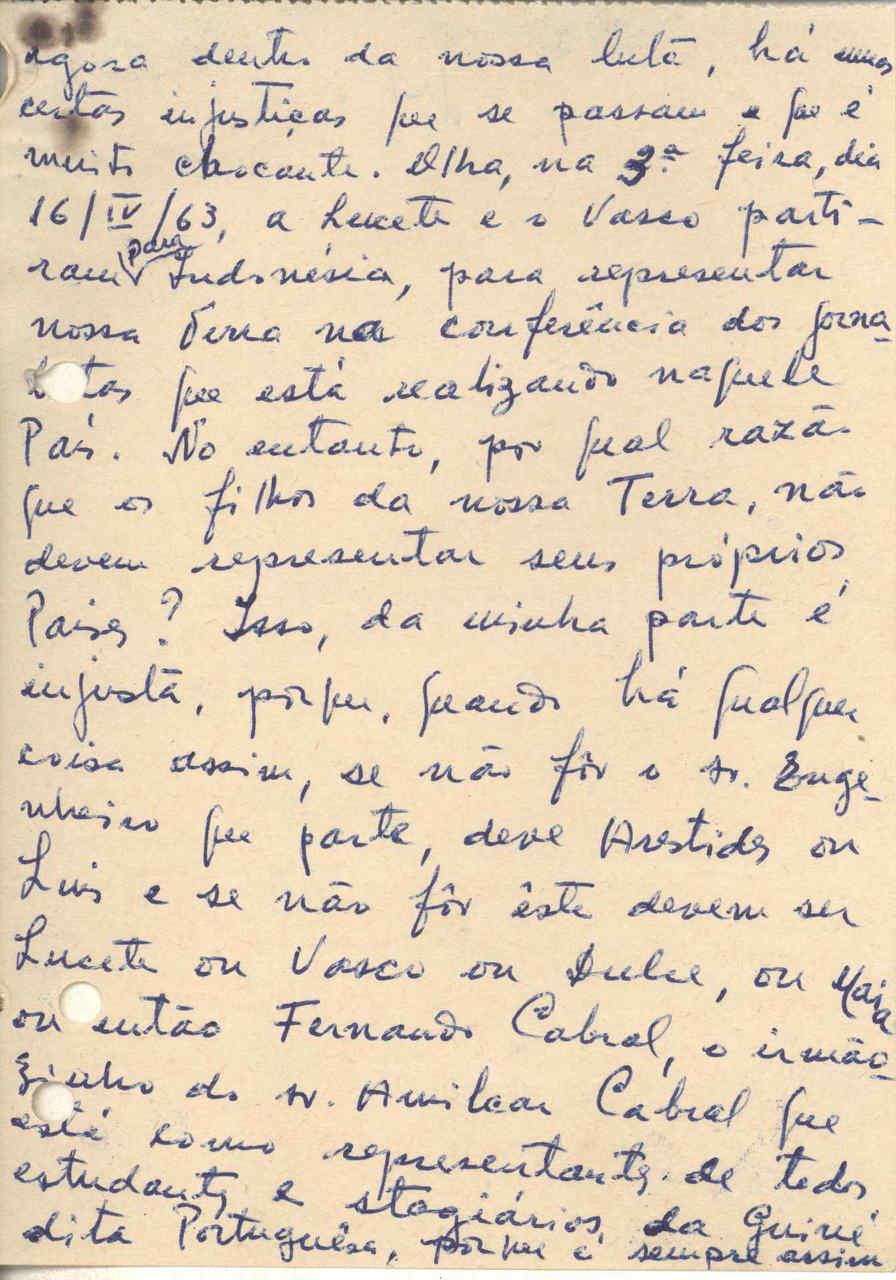 agora dentro da nossa lutã, há umas
certas injustiças que se passam e que é
muito chocante. Olha, na 3ª feira, dia
16/IV/63, a Lucete e o Vasco parti-
ram para Indonésia, para representar
nossa Terra na conferência dos jorna-
tas que está realizando naquele
País. No entanto, por qual razão
que os filhos da nossa Terra, não
devem representar seus próprios
Paises? Isso, da minha parte é
injustã, porque, quando há qualquer
coisa assim, se não fôr o sr. Enge-
nheiro que parte, deve Arestides ou
Luis e se não fôr êste devem ser
Lucete ou Vasco ou Dulce, ou Maia
ou então Fernando Cabral, o irmão-
zinho do sr. Amilcar Cabral que
está como representante de todos
estudantes e stagiários da Guiné
dita Portuguêsa, porque é sempre assim